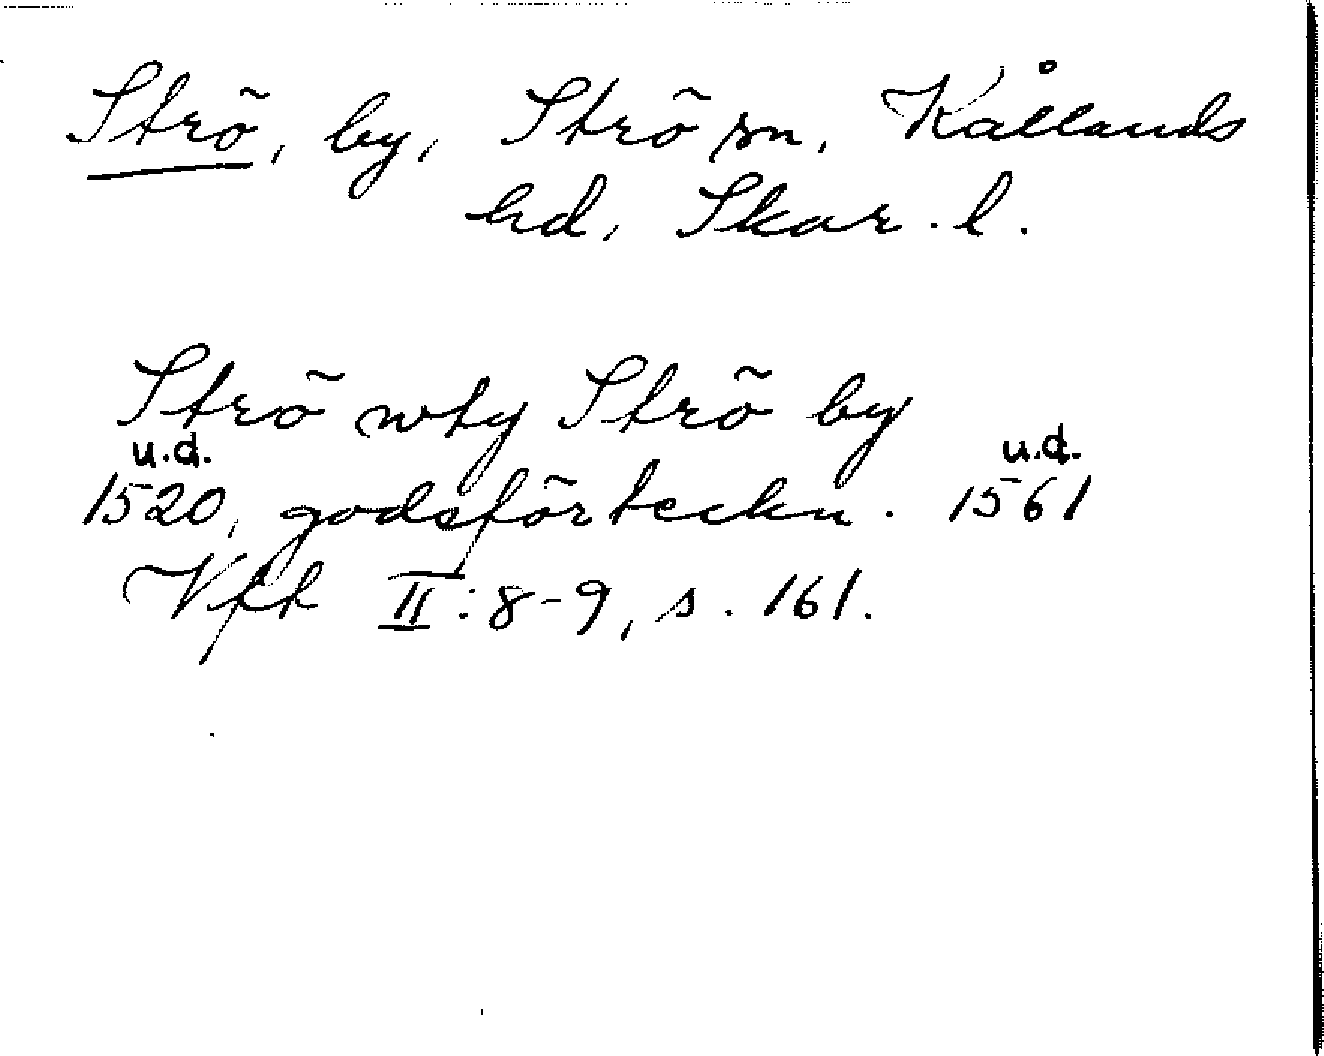 Strö, by, Strö sn, Kållands
hd, Skar. l.
Strö wty Strö by
u.d. u.d.
1520, godsförteckn. 1561
Vfft II:8-9, s. 161.